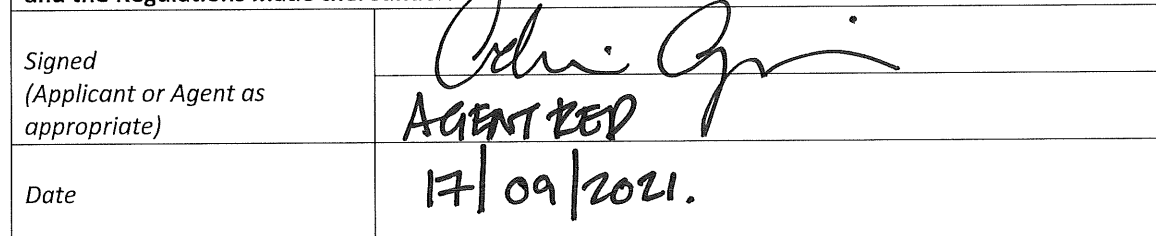 and the Regulations made thereunder.
Signed
(Applicant or Agent as
appropriate)
AGENT RED
Date
17/09/2021.